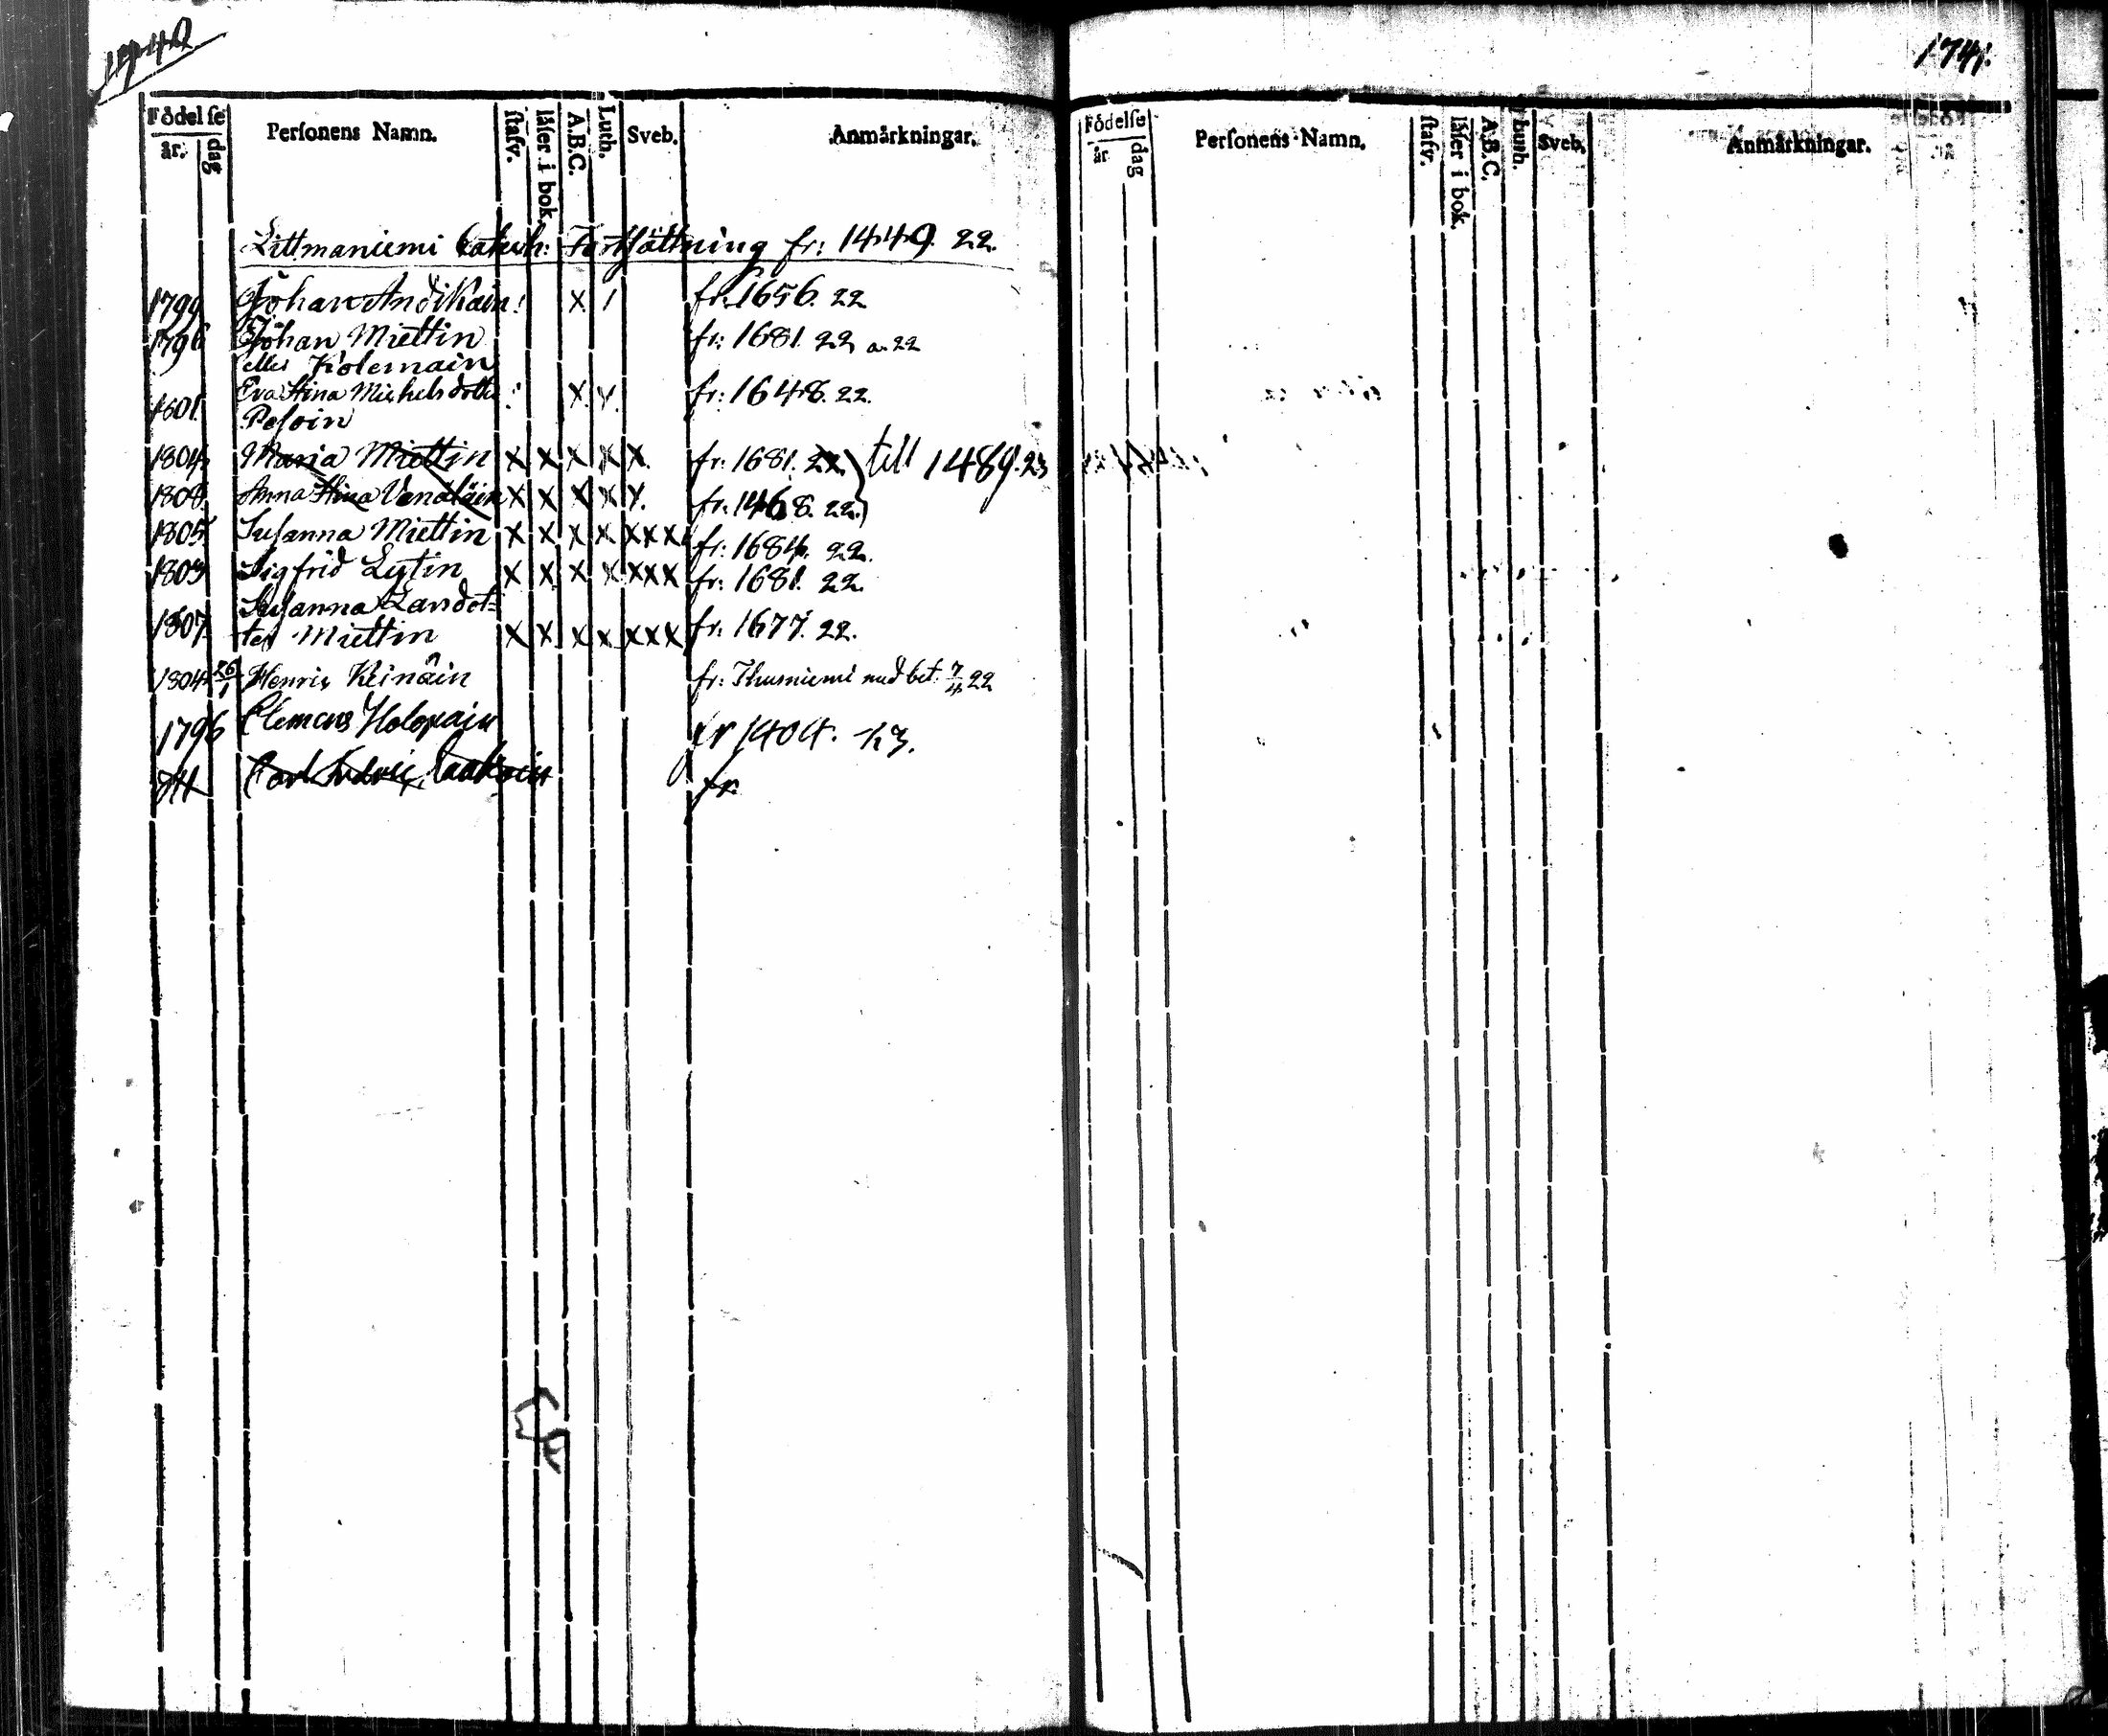 1740
Födelse
år. dag
Personens Namn.
stafv.
låser i bok.
A.B.C.
Luth.
Sveb.
Anmärkningar.
Littmaniemi Catech: Fortsättning fr: 1449. 22.
1799 Johan Andikain X / fr: 1656. 22
1796 Johan Miettin fr: 1681. 22 a. 22
eller Kolemain
1801. Eva Stina Michelsdotter X fr: 1648. 22.
Peloin
1804 Maria Miettin X X X X X. fr: 1681. 22) till 1489. 23
1808. Anna Stina Vänäläin X X X X X. fr: 1468. 22.)
1805 Susanna Miettin X X X X XXX fr: 1684. 22.
1803 Sigfrid Lytin X X X X XXX fr: 1681. 22.
Susanna Larsdot=
1807. ter Miettin X X X X XXX fr: 1677. 22.
1804 26/1 Henric Keinäin fr: Idusniemi med bet. 7/4 22
1796 Clemens Holopain fr 1404. 23.
Carl fr.
1741.
Födelse
år dag
Personens Namn.
stafv.
låser i bok.
A.B.C.
buth.
Sveb.
Anmärkningar.